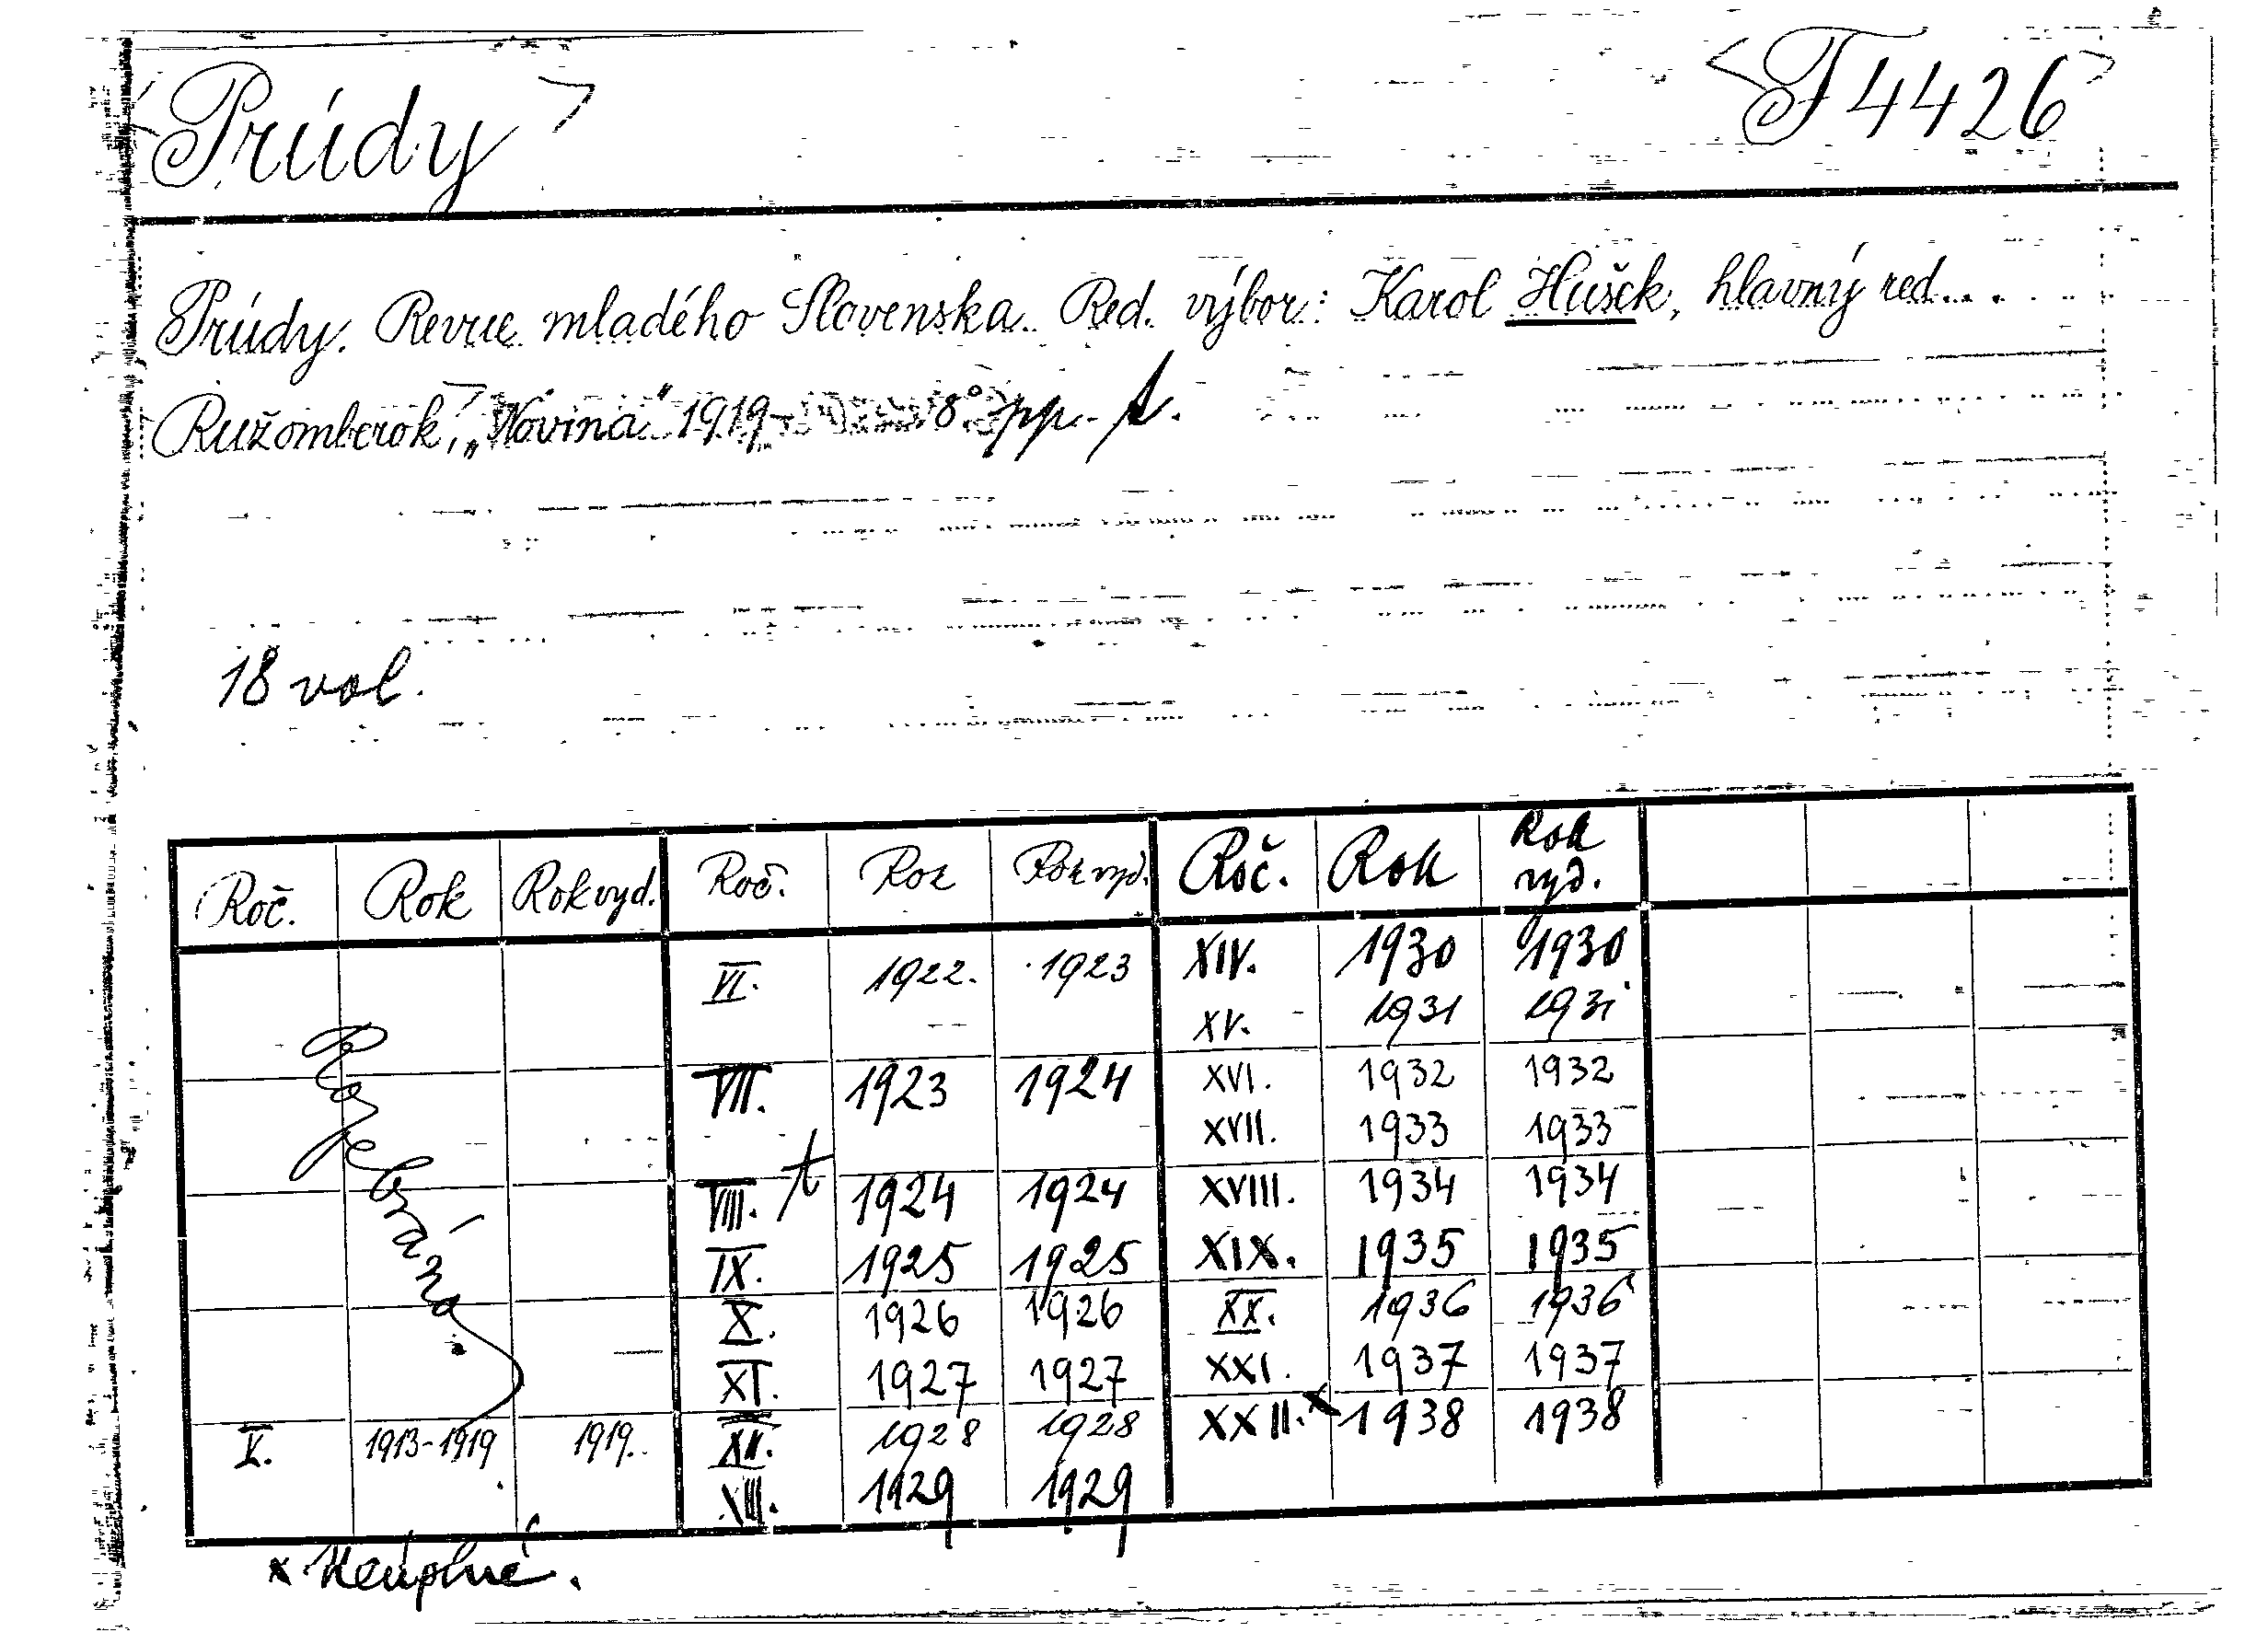 <Prúdy> <T 4426>
Prúdy. Revue mladého Slovenska. Red. výbor: Karol Hušek, hlavný red...
Ružomberok, „Novina" 1919- 8° pp.-t.
18 vol.
Roč. Rok Rok vyd. Roč. Rok Rok vyd. Roč. Rok Rok vyd.
VI. 1922. 1923 XIV. 1930 1930
XV. 1931 1931
VII. 1923 1924 XVI. 1932 1932
XVII. 1933 1933
VIII. t 1924 1924 XVIII. 1934 1934
IX. 1925 1925 XIX. 1935 1935
X. 1926 1926 XX. 1936 1936
XI. 1927 1927 XXI. 1937 1937
V. 1913-1919 1919. XII. 1928 1928 XXII. x 1938 1938
XIII. 1929 1929
Rozebráno
x Neúplné.